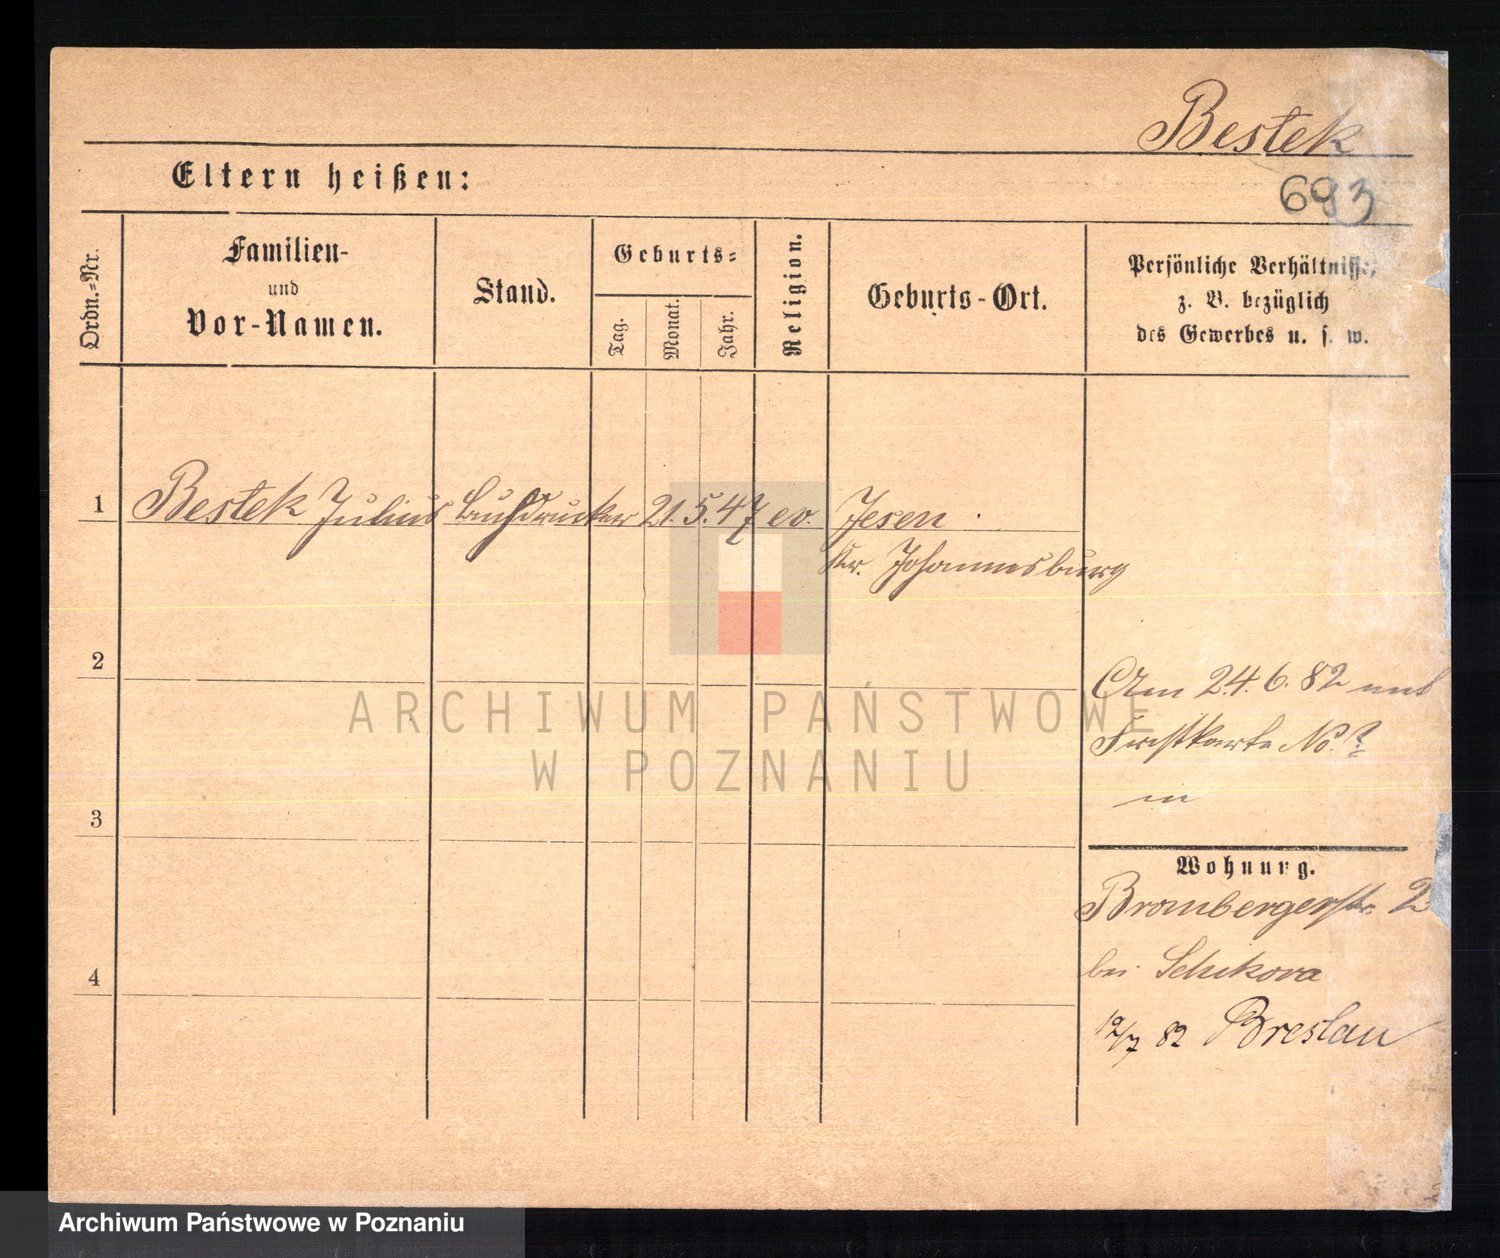 Bestek
693
Eltern heißen:
Ordn.-Nr.
Familien-
und
Vor-Namen.
Stand.
Geburts-
Tag.
Monat.
Jahr.
Religion.
Geburts-Ort.
Persönliche Verhältnisse
z. B. bezüglich
des Gewerbes u. s. w.
1 Bestek Julius Buchdrucker 21. 5. 47 ev. Jesen
Kr. Johannesburg
2
Am 24. 6. 82 mit
No. ?
in
3
4
ARCHIWUM PAŃSTWOWE
W POZNANIU
Wohnung.
Brombergerstr. 2
bei Schikora
12/7 82 Breslau
Archiwum Państwowe w Poznaniu